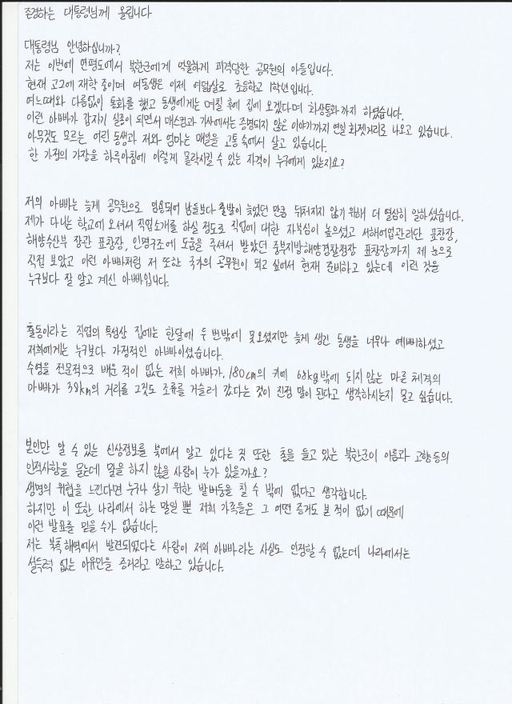 존경하는 대통령님께 올립니다
대통령님 안녕하십니까?
저는 이번에 연평도에서 북한군에게 억울하게 피격당한 공무원의 아들입니다.
현재 고2에 재학 중이며 여동생은 이제 여덟살로 초등학교 1학년입니다.
여느때와 다름없이 통화를 했고 동생에게는 며칠 후에 집에 오겠다며 화상통화까지 하셨습니다.
이런 아빠가 갑자기 실종이 되면서 매스컴과 기사에서는 증명되지 않은 이야기까지 연일 화젯거리로 나오고 있습니다.
아무것도 모르는 어린 동생과 저와 엄마는 매일을 고통 속에서 살고 있습니다.
한 가정의 가장을 하루아침에 이렇게 몰락시킬 수 있는 자격이 누구에게 있는지요?
저의 아빠는 늦게 공무원으로 임용되어 남들보다 출발이 늦었던 만큼 뒤처지지 않기 위해 더 열심히 일하셨습니다.
제가 다니는 학교에 오셔서 직업소개를 하실 정도로 직업에 대한 자부심이 높으셨고 서해어업관리단 표창장,
해양수산부 장관 표창장, 인명구조에 도움을 주셔서 받았던 중부지방해양경찰청장 표창장까지 제 눈으로
직접 보았고 이런 아빠처럼 저 또한 국가의 공무원이 되고 싶어서 현재 준비하고 있는데 이런 것을
누구보다 잘 알고 계신 아빠입니다.
출동이라는 직업의 특성상 집에는 한달에 두 번밖에 못오셨지만 늦게 생긴 동생을 너무나 예뻐하셨고
저희에게는 누구보다 가정적인 아빠이셨습니다.
수영을 전문적으로 배운 적이 없는 저희 아빠가, 180cm의 키에 68kg밖에 되지 않는 마른 체격의
아빠가 38km의 거리를 그것도 조류를 거슬러 갔다는 것이 진정 말이 된다고 생각하시는지 묻고 싶습니다.
본인만 알 수 있는 신상정보를 북에서 알고 있다는 것 또한 총을 들고 있는 북한군이 이름과 고향 등의
인적사항을 묻는데 말을 하지 않을 사람이 누가 있을까요?
생명의 위협을 느낀다면 누구나 살기 위한 발버둥을 칠 수 밖에 없다고 생각합니다.
하지만 이 또한 나라에서 하는 말일 뿐 저희 가족들은 그 어떤 증거도 본 적이 없기 때문에
이런 발표를 믿을 수가 없습니다.
저는 북측 해역에서 발견되었다는 사람이 저의 아빠라는 사실도 인정할 수 없는데 나라에서는
설득력 없는 이유만을 증거라고 말하고 있습니다.